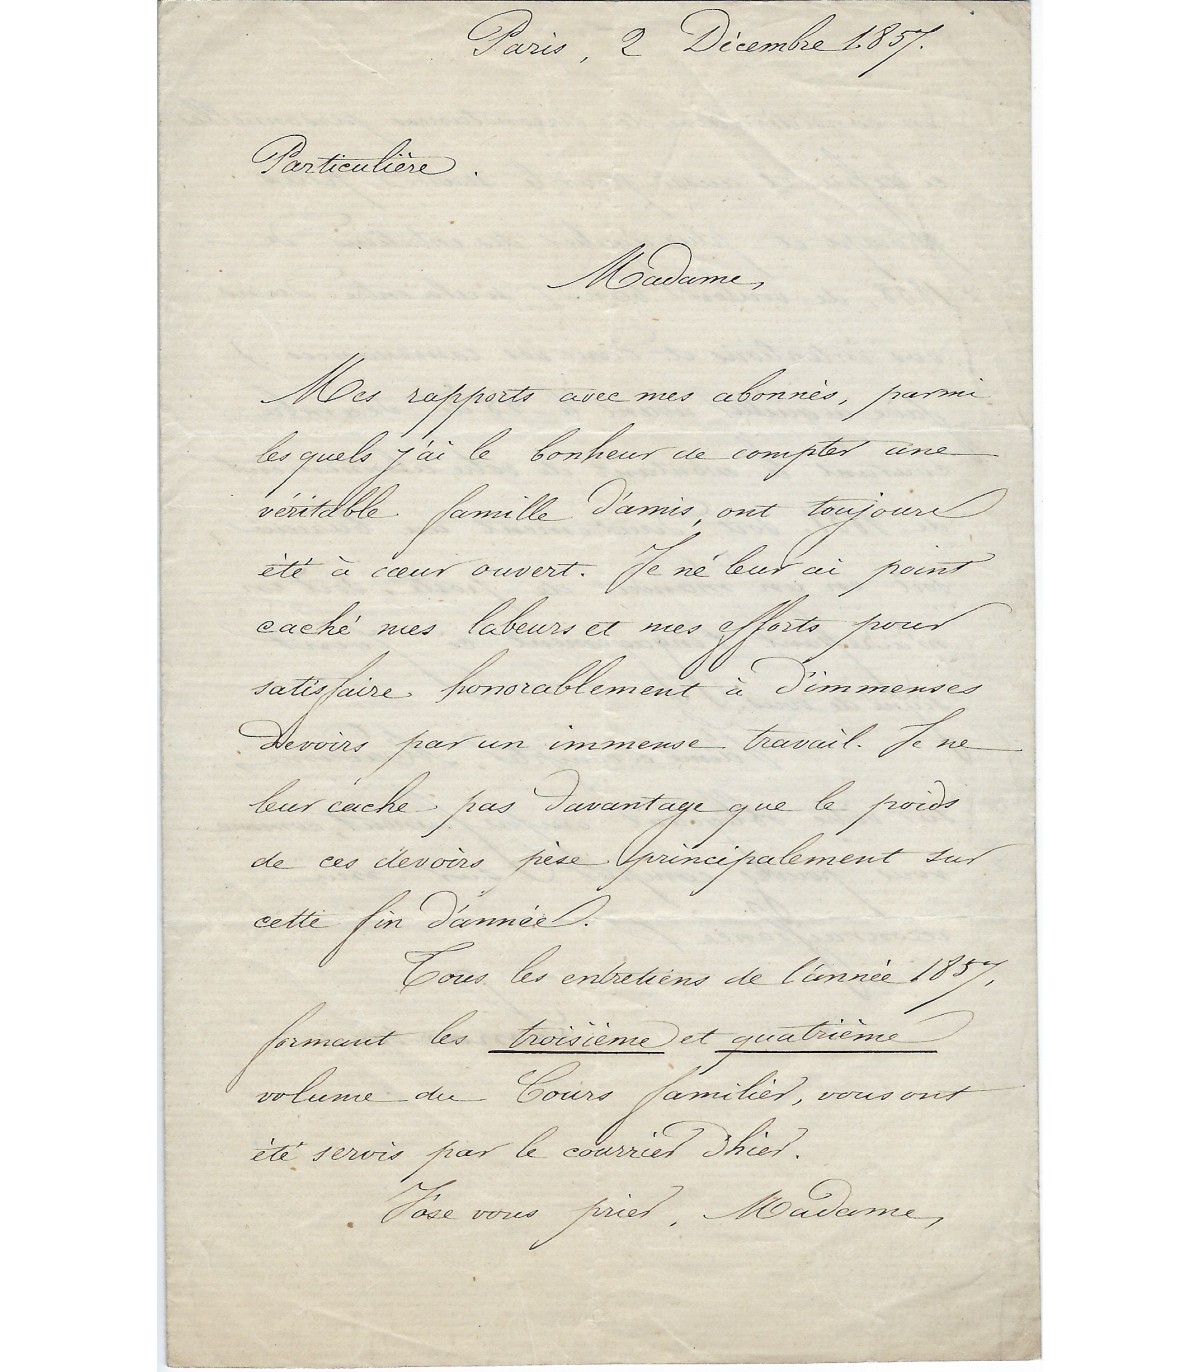 Paris, 2 Décembre 1857.
Particulière.
Madame,
Mes rapports avec mes abonnés, parmi
les quels j'ai le bonheur de compter une
véritable famille d'amis, ont toujours
été à cœur ouvert. Je ne leur ai point
caché mes labeurs et mes efforts pour
satisfaire honorablement à d'immenses
devoirs par un immense travail. Je ne
leur cache pas davantage que le poids
de ces devoirs pèse principalement sur
cette fin d'année.
Tous les entretiens de l'année 1857,
formant les troisième et quatrième
volume du Cours familier, vous ont
été servis par le courrier d'hier.
J'ose vous prier, Madame,